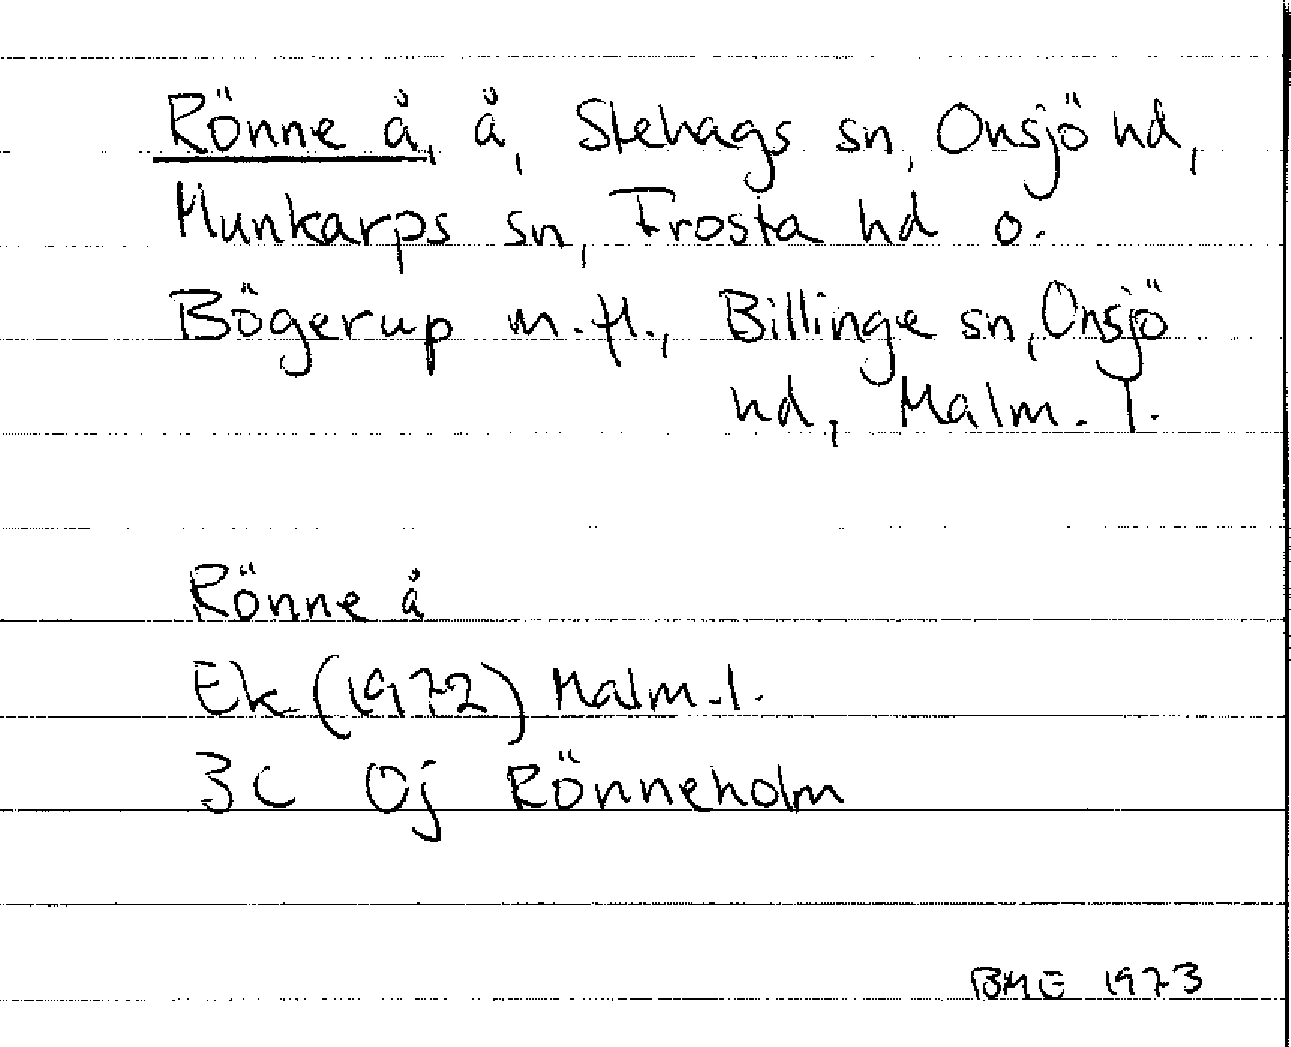 Rönne å, å, Stehags sn, Onsjö hd,
Munkarps sn, Frosta hd o.
Bögerup m.fl., Billinge sn, Onsjö
hd, Malm. l.
Rönne å
Ek (1972) Malm.l.
3C 0j Rönneholm
BME 1973